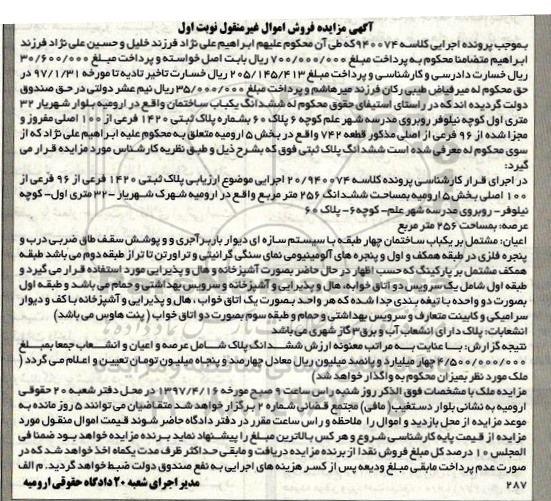 آگهی مزایده فروش اموال غیرمنقول نوبت اول
بموجب پرونده اجرایی کلاسه ۹۴۰۰۷۴ که طی آن محکوم علیهم ابراهیم علی نژاد فرزند خلیل و حسین علی نژاد فرزند
ابراهیم متضامنا محکوم به پرداخت مبلغ ۷۰۰/۰۰۰/۰۰۰ ریال بابت اصل خواسته و پرداخت مبلغ ۳۰/۶۰۰/۰۰۰
ریال خسارت دادرسی و کارشناسی و پرداخت مبلغ ۲۰۵/۱۴۵/۴۱۳ ریال خسارت تاخیر تادیه تا مورخه ۹۷/۱/۳۱ در
حق محکوم له میر فیاض طبیی رکان فرزند میرهاشم و پرداخت مبلغ ۳۵/۰۰۰/۰۰۰ ریال نیم عشر دولتی در حق صندوق
دولت گردیده اند که در راستای استیفای حقوق محکوم له ششدانگ یکباب ساختمان واقع در ارومیه بلوار شهریار ۳۲
متری اول کوچه نیلوفر روبروی مدرسه شهر علم کوچه ۶ پلاک ۶۰ بشماره پلاک ثبتی ۱۴۲۰ فرعی از ۱۰۰ اصلی مفروز و
مجزا شده از ۹۶ فرعی از اصلی مذکور قطعه ۷۴۲ واقع در بخش ۵ ارومیه متعلق به محکوم علیه ابراهیم علی نژاد که از
سوی محکوم له معرفی شده است ششدانگ پلاک ثبتی فوق که بشرح ذیل و طبق نظریه کارشناس مورد مزایده قرار می
گیرد:
در اجرای قرار کارشناسی پرونده کلاسه ۲۰/۹۴۰۰۷۴ اجرایی موضوع ارزیابی پلاک ثبتی ۱۴۲۰ فرعی از ۹۶ فرعی از
۱۰۰ اصلی بخش ۵ ارومیه بمساحت ششدانگ ۲۵۶ متر مربع واقع در ارومیه شهرک شهریار -۳۲ متری اول- کوچه
نیلوفر- روبروی مدرسه شهر علم- کوچه ۶- پلاک ۶۰
عرصه: بمساحت ۲۵۶ متر مربع
اعیان: مشتمل بر یکباب ساختمان چهار طبقه با سیستم سازه ای دیوار باربر آجری و پوشش سقف طاق ضربی درب و
پنجره فلزی در طبقه همکف و اول و پنجره های آلومینیومی نمای سنگی گرانیتی و تراورتن تا تراز طبقه دوم می باشد طبقه
همکف مشتمل بر پارکینگ که حسب اظهار در حال حاضر بصورت آشپزخانه و هال و پذیرایی مورد استفاده قرار می گیرد و
طبقه اول شامل یک سرویس دو اتاق خوابه، هال و پذیرایی و آشپزخانه و سرویس بهداشتی و حمام می باشد و طبقه اول
بصورت دو واحده با تیغه بندی جدا شده که هر واحد بصورت یک اتاق خواب، هال و پذیرایی و آشپزخانه با کف و دیوار
سرامیکی و کابینت متعارف و سرویس بهداشتی و حمام و طبقه سوم بصورت دو اتاق خواب (پنت هاوس می باشد)
انشعابات: پلاک دارای انشعاب آب و برق ۳ گاز شهری می باشد
نتیجه گزارش: با عنایت به مراتب معنونه ارزش ششدانگ پلاک شامل عرصه و اعیان و انشعاب جمعا بمبلغ
۴/۵۰۰/۰۰۰/۰۰۰ چهار میلیارد و پانصد میلیون ریال معادل چهارصد و پنجاه میلیون تومان تعیین و اعلام می گردد (
ملک مورد نظر بمیزان محکوم به واگذار خواهد شد)
مزایده ملک با مشخصات فوق الذکر روز شنبه راس ساعت ۹ صبح مورخه ۱۳۹۷/۴/۱۶ در محل دفتر شعبه ۲۰ حقوقی
ارومیه به نشانی بلوار دستغیب (مافی) مجتمع قضائی شماره ۲ برگزار خواهد شد متقاضیان می توانند ۵ روز مانده به
موعد مزایده از محل بازدید و اموال را ملاحظه و راس ساعت مقرر در دفتر دادگاه حاضر شوند قیمت اموال منقول مورد
مزایده از قیمت پایه کارشناسی شروع و هر کس بالاترین مبلغ را پیشنهاد نماید برنده مزایده خواهد بود ضمنا فی
المجلس ۱۰ درصد کل مبلغ فروش نقدا از برنده مزایده دریافت و مابقی حداکثر ظرف مدت یکماه اخذ خواهد شد که در
صورت عدم پرداخت مابقی مبلغ ودیعه پس از کسر هزینه های اجرایی به نفع صندوق دولت ضبط خواهد گردید. م الف
۲۸۷ مدیر اجرای شعبه ۲۰ دادگاه حقوقی ارومیه